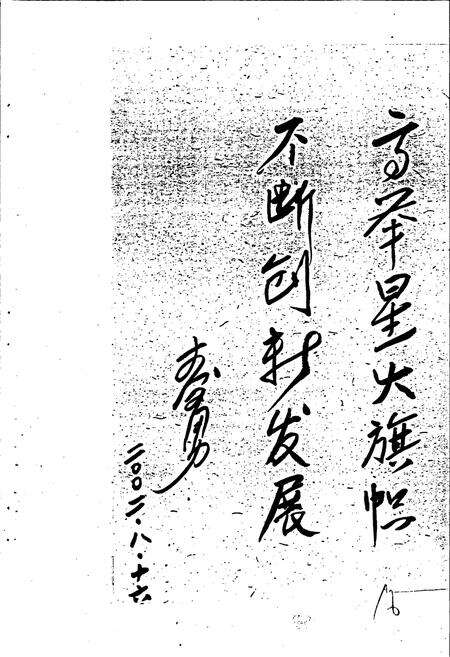 高举星火旗帜
不断创新发展
二〇〇二·八·十六